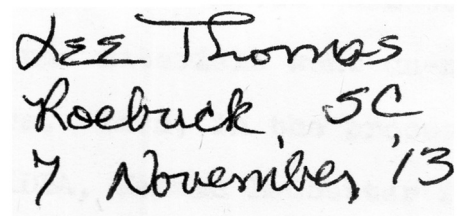 Lee Thomas
Roebuck, SC
7 November, '13